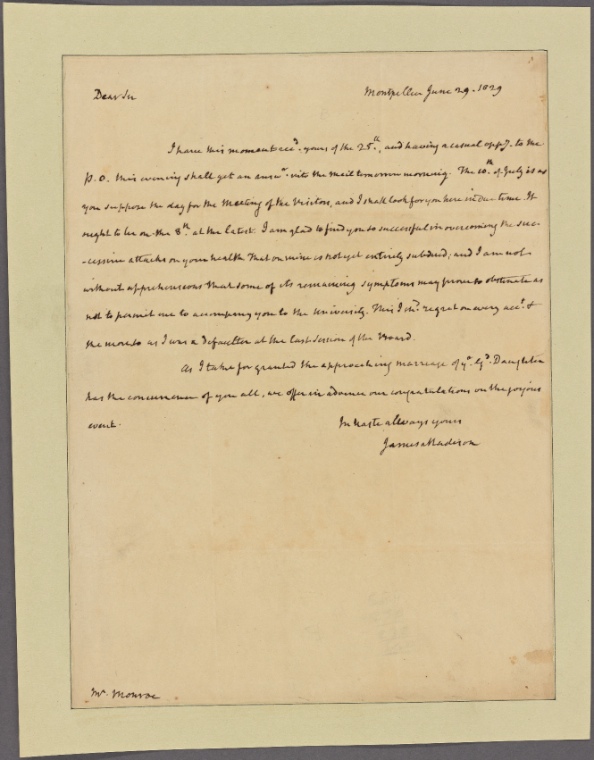 Dear Sir
Montpellier June 29. 1829
I have this moment recd. yours of the 25th, and having a casual oppy. to the
P. O. this evening shall get an answr. into the mail tomorrow morning. The 10th. of July is as
you suppose the day for the Meeting of the Visitors, and I shall look for you here in due time. It
ought to be on the 8th. at the latest. I am glad to find you so successful in overcoming the suc-
-cessive attacks on your health. That on mine is not yet entirely subdued; and I am not
without apprehensions that some of its remaining symptoms may prove so obstinate as
not to permit me to accompany you to the University. This I shd. regret on every acct. &
the more so as I was a defaulter at the last Session of the Board.
As I take for granted the approaching marriage of yr. Gd. Daughter
has the concurrence of you all, we offer in advance our congratulations on the joyous
event.
In haste always yours
James Madison
Mr. Monroe